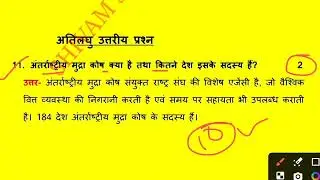 अतिलघु उत्तरीय प्रश्न
11. अंतर्राष्ट्रीय मुद्रा कोष क्या है तथा कितने देश इसके सदस्य हैं? 2
उत्तर- अंतर्राष्ट्रीय मुद्रा कोष संयुक्त राष्ट्र संघ की विशेष एजेन्सी है, जो वैश्विक
वित्त व्यवस्था की निगरानी करती है एवं समय पर सहायता भी उपलब्ध कराती
है। 184 देश अंतर्राष्ट्रीय मुद्रा कोष के सदस्य हैं।